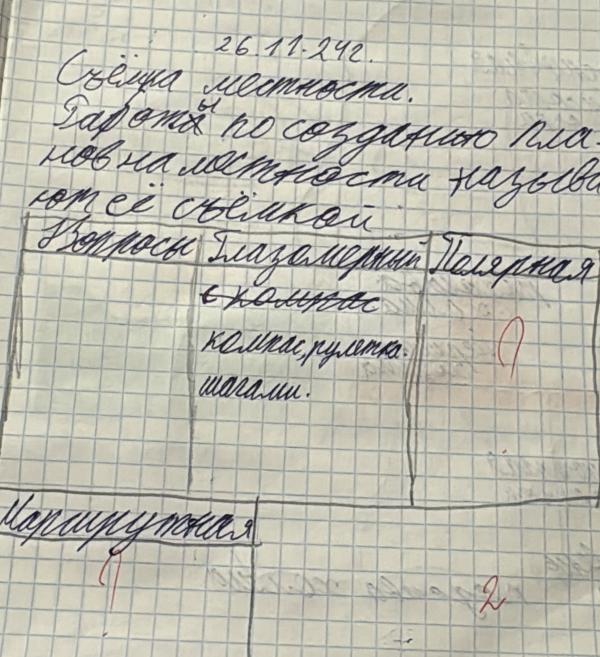 26.11.24г.
Съёмка местности.
Работы по созданию пла-
нов на местности называ
ют её съёмкой
Вопросы Глазомерный Полярная
с компас
компас, рулетка. ?
шагами.
Маршрутная
? 2